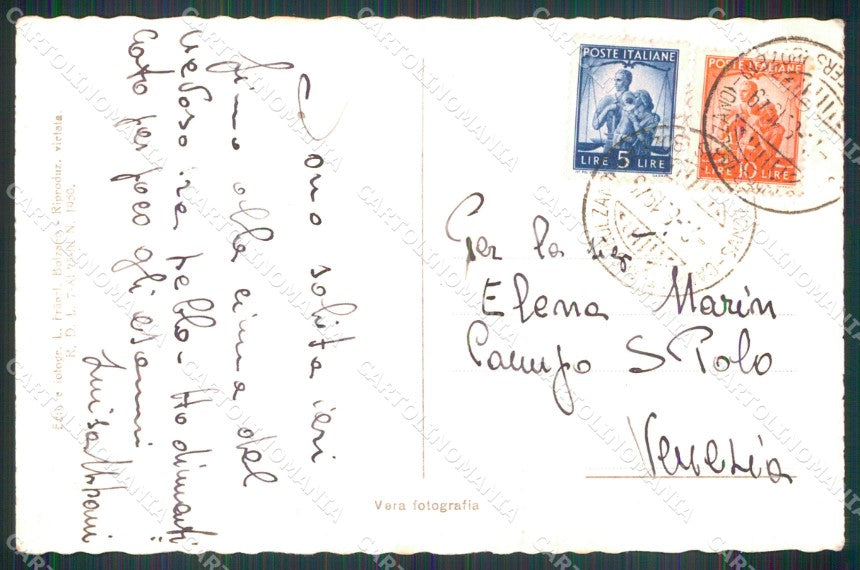 Sono salita ieri
fino alla cima del
Nevoso era bello - Ho dimenti
cato per poco gli esami
Luisa
Ediz. e fotogr. L. Fränzl, Bolzano - Riproduz. vietata.
Vera fotografia
POSTE ITALIANE
LIRE 5 LIRE
POSTE ITALIANE
LIRE 10 LIRE
Per la
Elena Marin
Campo S Polo
Venezia
CARTOLINOMANIA